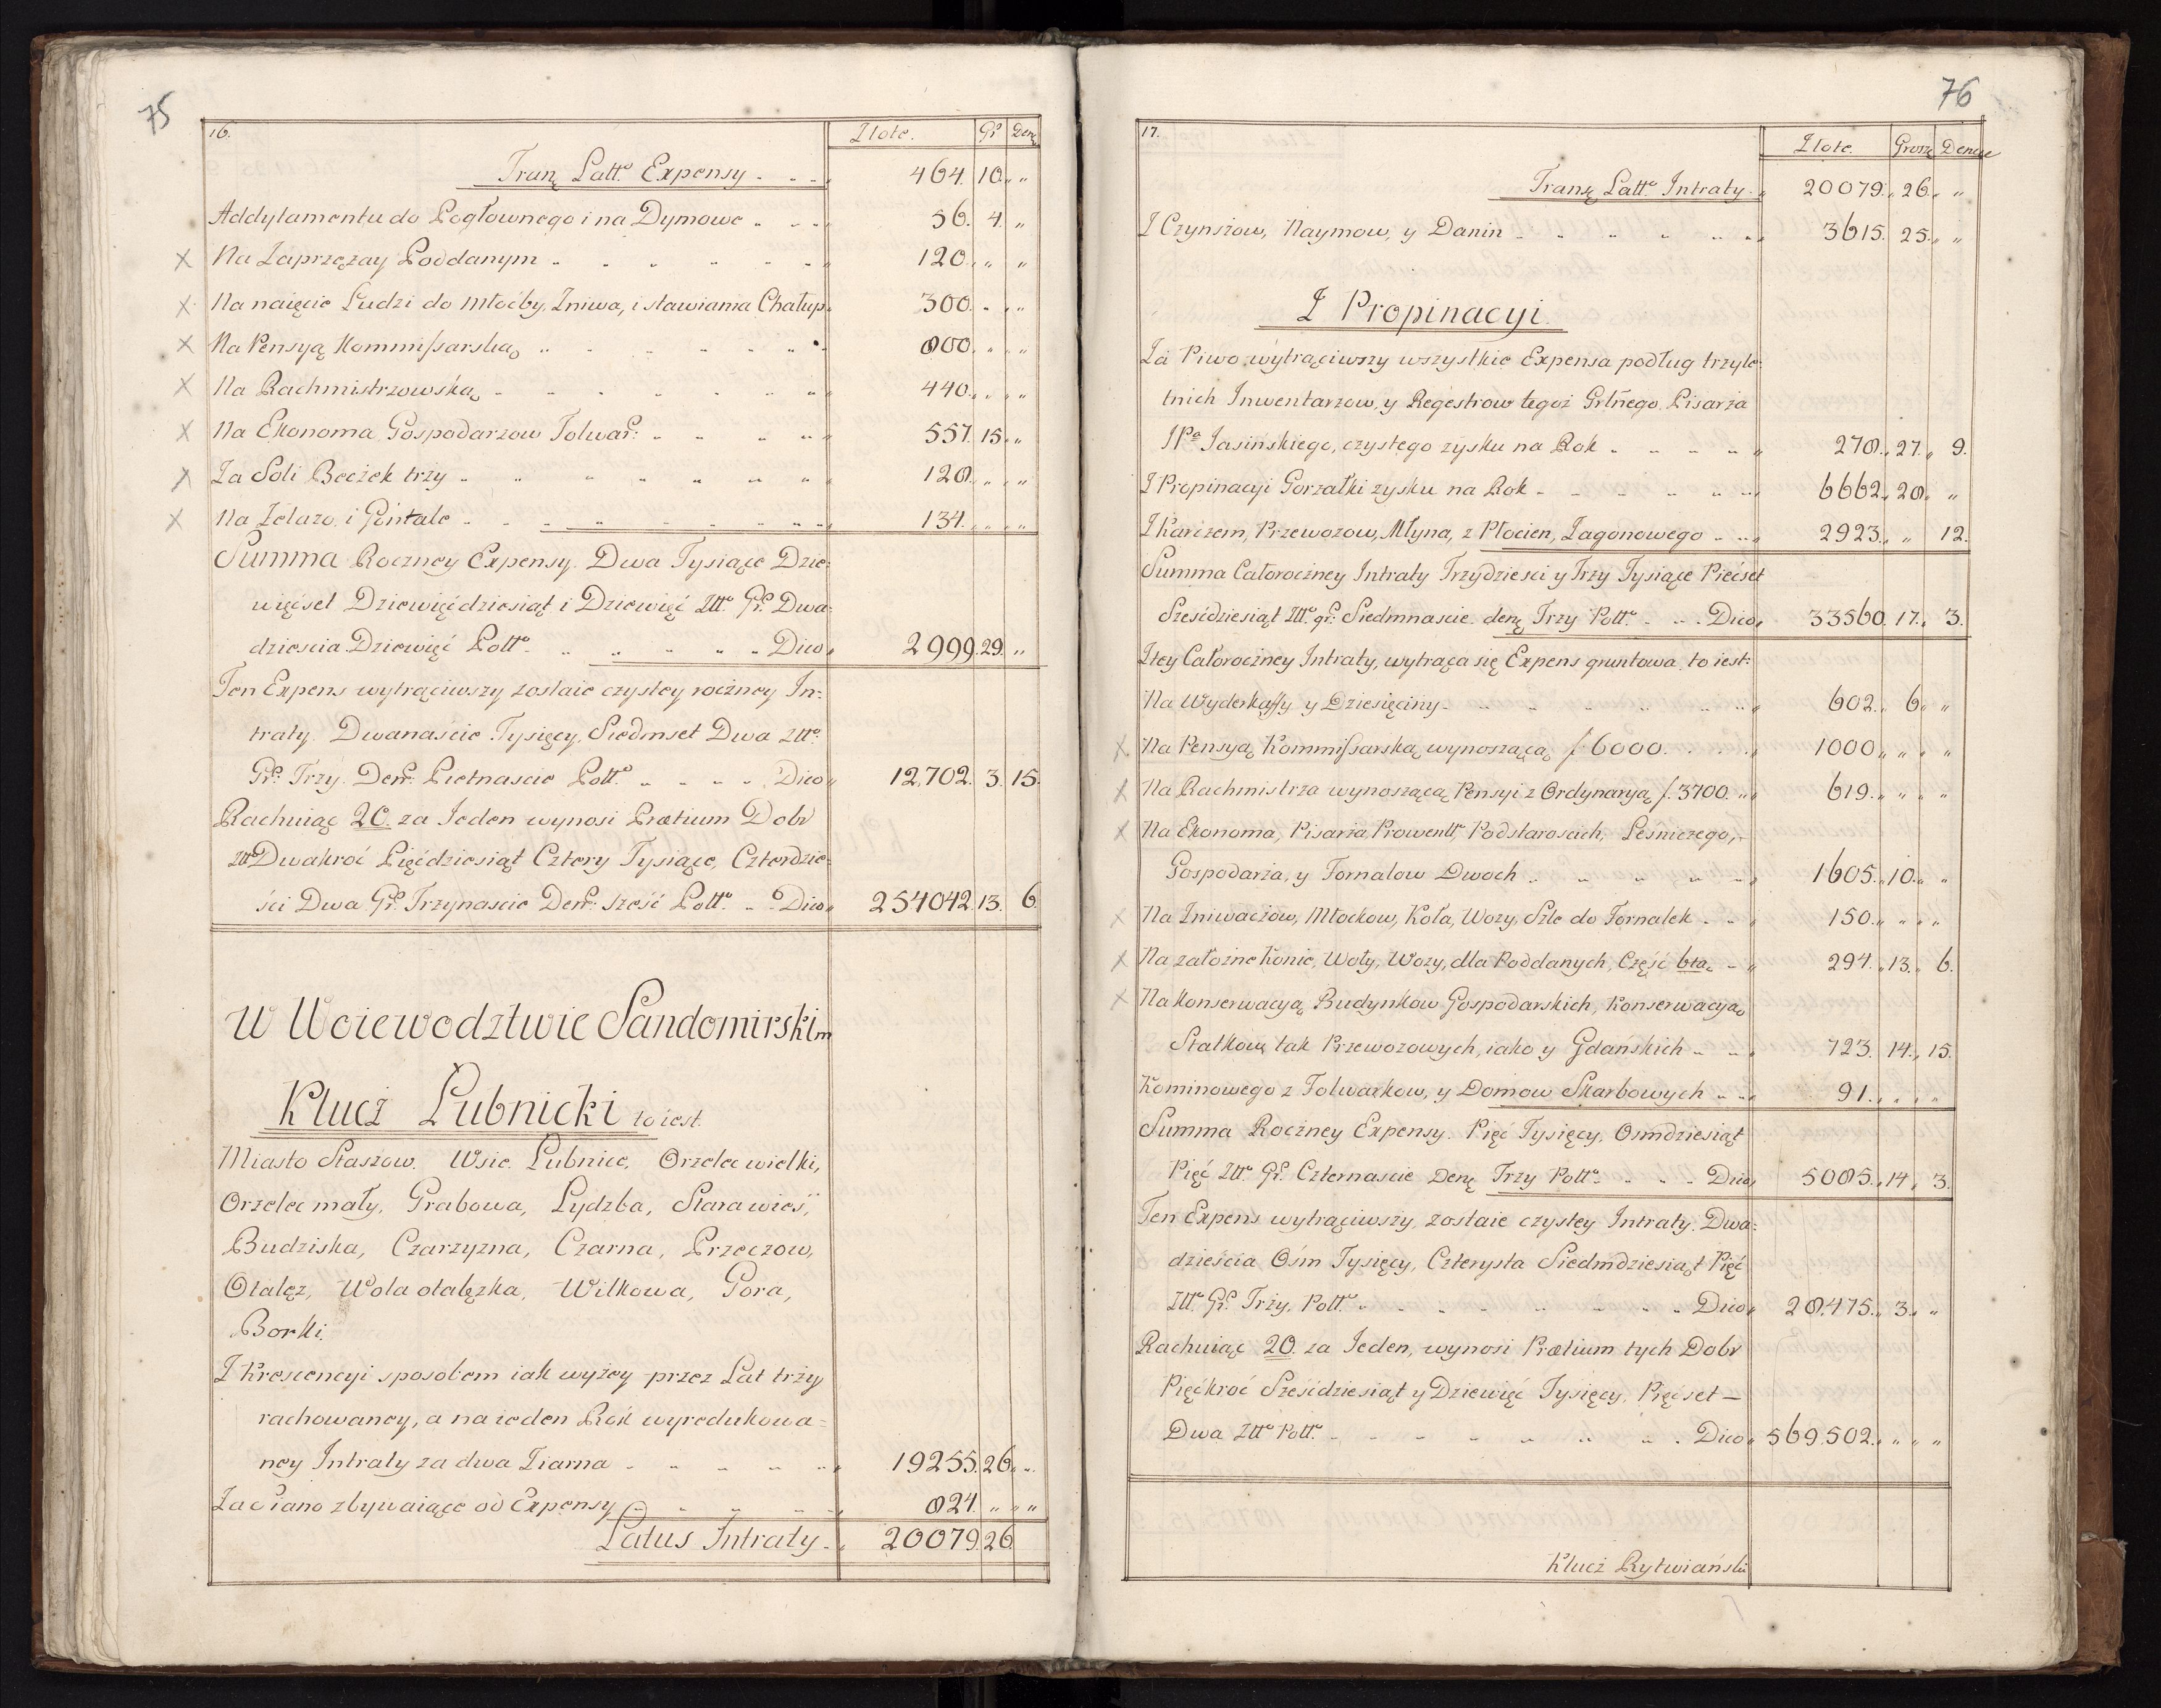 75
16. Złote. Gr Denę
Tranę Latt. Expensy 464. 10.
Addytamentu do Pogłownego i na Dymowe 56. 4.
× Na Zaprzężay Poddanym 120.
× Na naięcie Ludzi do Młoćby, Zniwa, i stawiania Chałup 300.
× Na Pensyą Kommissarską 800.
× Na Rachmistrzowską 440.
× Na Ekonoma, Gospodarzow Folwar: 557. 15.
× Za Soli Beczek trzy 128.
× Na Zelazo, i Gontale 134.
Summa Roczney Expensy. Dwa Tysiące Dzie-
więćset Dziewięćdziesiąt i Dziewięć Złł. Gr. Dwa-
dziescia Dziewięć Poll. Dico 2999. 29.
Ten Expens wytrąciwszy zostaie czystey roczney In-
traty. Dwanaście Tysięcy, Siedmset Dwa Złł.
Gr. Trzy. Den: Pietnascie Poll. Dico 12,702. 3. 15.
Rachuiąc 20. za Jeden wynosi Prætium Dobr
Złł Dwakroć Pięćdziesiąt Cztery Tysiące, Czterdzie-
ści Dwa Gr. Trzynascie Den: sześć Poll. Dico 254042. 13. 6.
W Woiewodztwie Sandomirskim
Klucz Łubnicki to iest.
Miasto Staszow. Wsie. Łubnice, Orzelec wielki,
Orzelec mały, Grabowa, Łydzba, Stara wieś,
Budziska, Czarzyzna, Czarna, Przeczow,
Otalęz, Wola otalęzka, Wilkowa, Gora,
Borki.
Z Krescencyi sposobem iak wyżey przez Lat trzy
rachowaney, a na ieden Rok wyredukowa-
ney Intraty za dwa Ziarna 19255. 26.
Za siano zbywaiące od Expensy 824.
Latus Intraty 20079. 26.
76
17. Złote. Grosz Denere
Tranę Latt. Intraty 20079. 26.
Z Czynszow, Naymow, y Danin 3615. 25.
Z Propinacyi.
Za Piwo wytrąciwszy wszystkie Expensa podług trzyle-
tnich Inwentarzow, y Regestrow tegoż Grlnego Pisarza
JPa Jasińskiego, czystego zysku na Rok 278. 27. 9.
Z Propinacyi Gorzałki zysku na Rok 6662. 28.
Z Karczem, Przewozow, Młyna, z Płocien, Zagonowego 2923. 12.
Summa Całoroczney Intraty Trzydziesci y Trzy Tysiące Piećset
Sześćdziesiąt Złł. gr. Siedmnascie denę Trzy Poll. Dico 33560. 17. 3.
Z tey Całoroczney Intraty, wytrąca się Expens gruntowa, to iest:
Na Wyderkaffy y Dziesięciny 602. 6.
× Na Pensyą Kommissarską wynoszącą f. 6000. 1000.
× Na Rachmistrza wynoszącą Pensyi z Ordynaryą f. 3700. 619.
× Na Ekonoma, Pisarza Prowentt. Podstaroscich, Leśniczego,
Gospodarza, y Fornalow Dwoch 1605. 10.
× Na Zniwaczow, Młockow, Koła, Wozy, Szle do Fornalek 150.
× Na załozne Konie, Woły, Wozy, dla Poddanych, Część 6ta. 294. 13. 6.
× Na Konserwacyą Budynkow Gospodarskich, Konserwacyą
Statkow tak Przewozowych, iako y Gdańskich 723. 14. 15.
Kominowego z Folwarkow, y Domow Skarbowych 91.
Summa Roczney Expensy. Pięć Tysięcy, Osmdziesiąt
Pięć Złł. Gr. Czternascie Denę Trzy Poll. Dico 5085. 14. 3.
Ten Expens wytrąciwszy, zostaie czystey Intraty. Dwa-
dzieścia Ośm Tysięcy, Czterysta Siedmdziesiąt Pięć
Złł. Gr. Trzy. Poll. Dico 28,475. 3.
Rachuiąc 20. za Jeden, wynosi Prætium tych Dobr
Pięćkroć Sześćdziesiąt y Dziewięć Tysięcy, Pięćset
Dwa Złł Poll. Dico 569.502.
Klucz Rytwiański